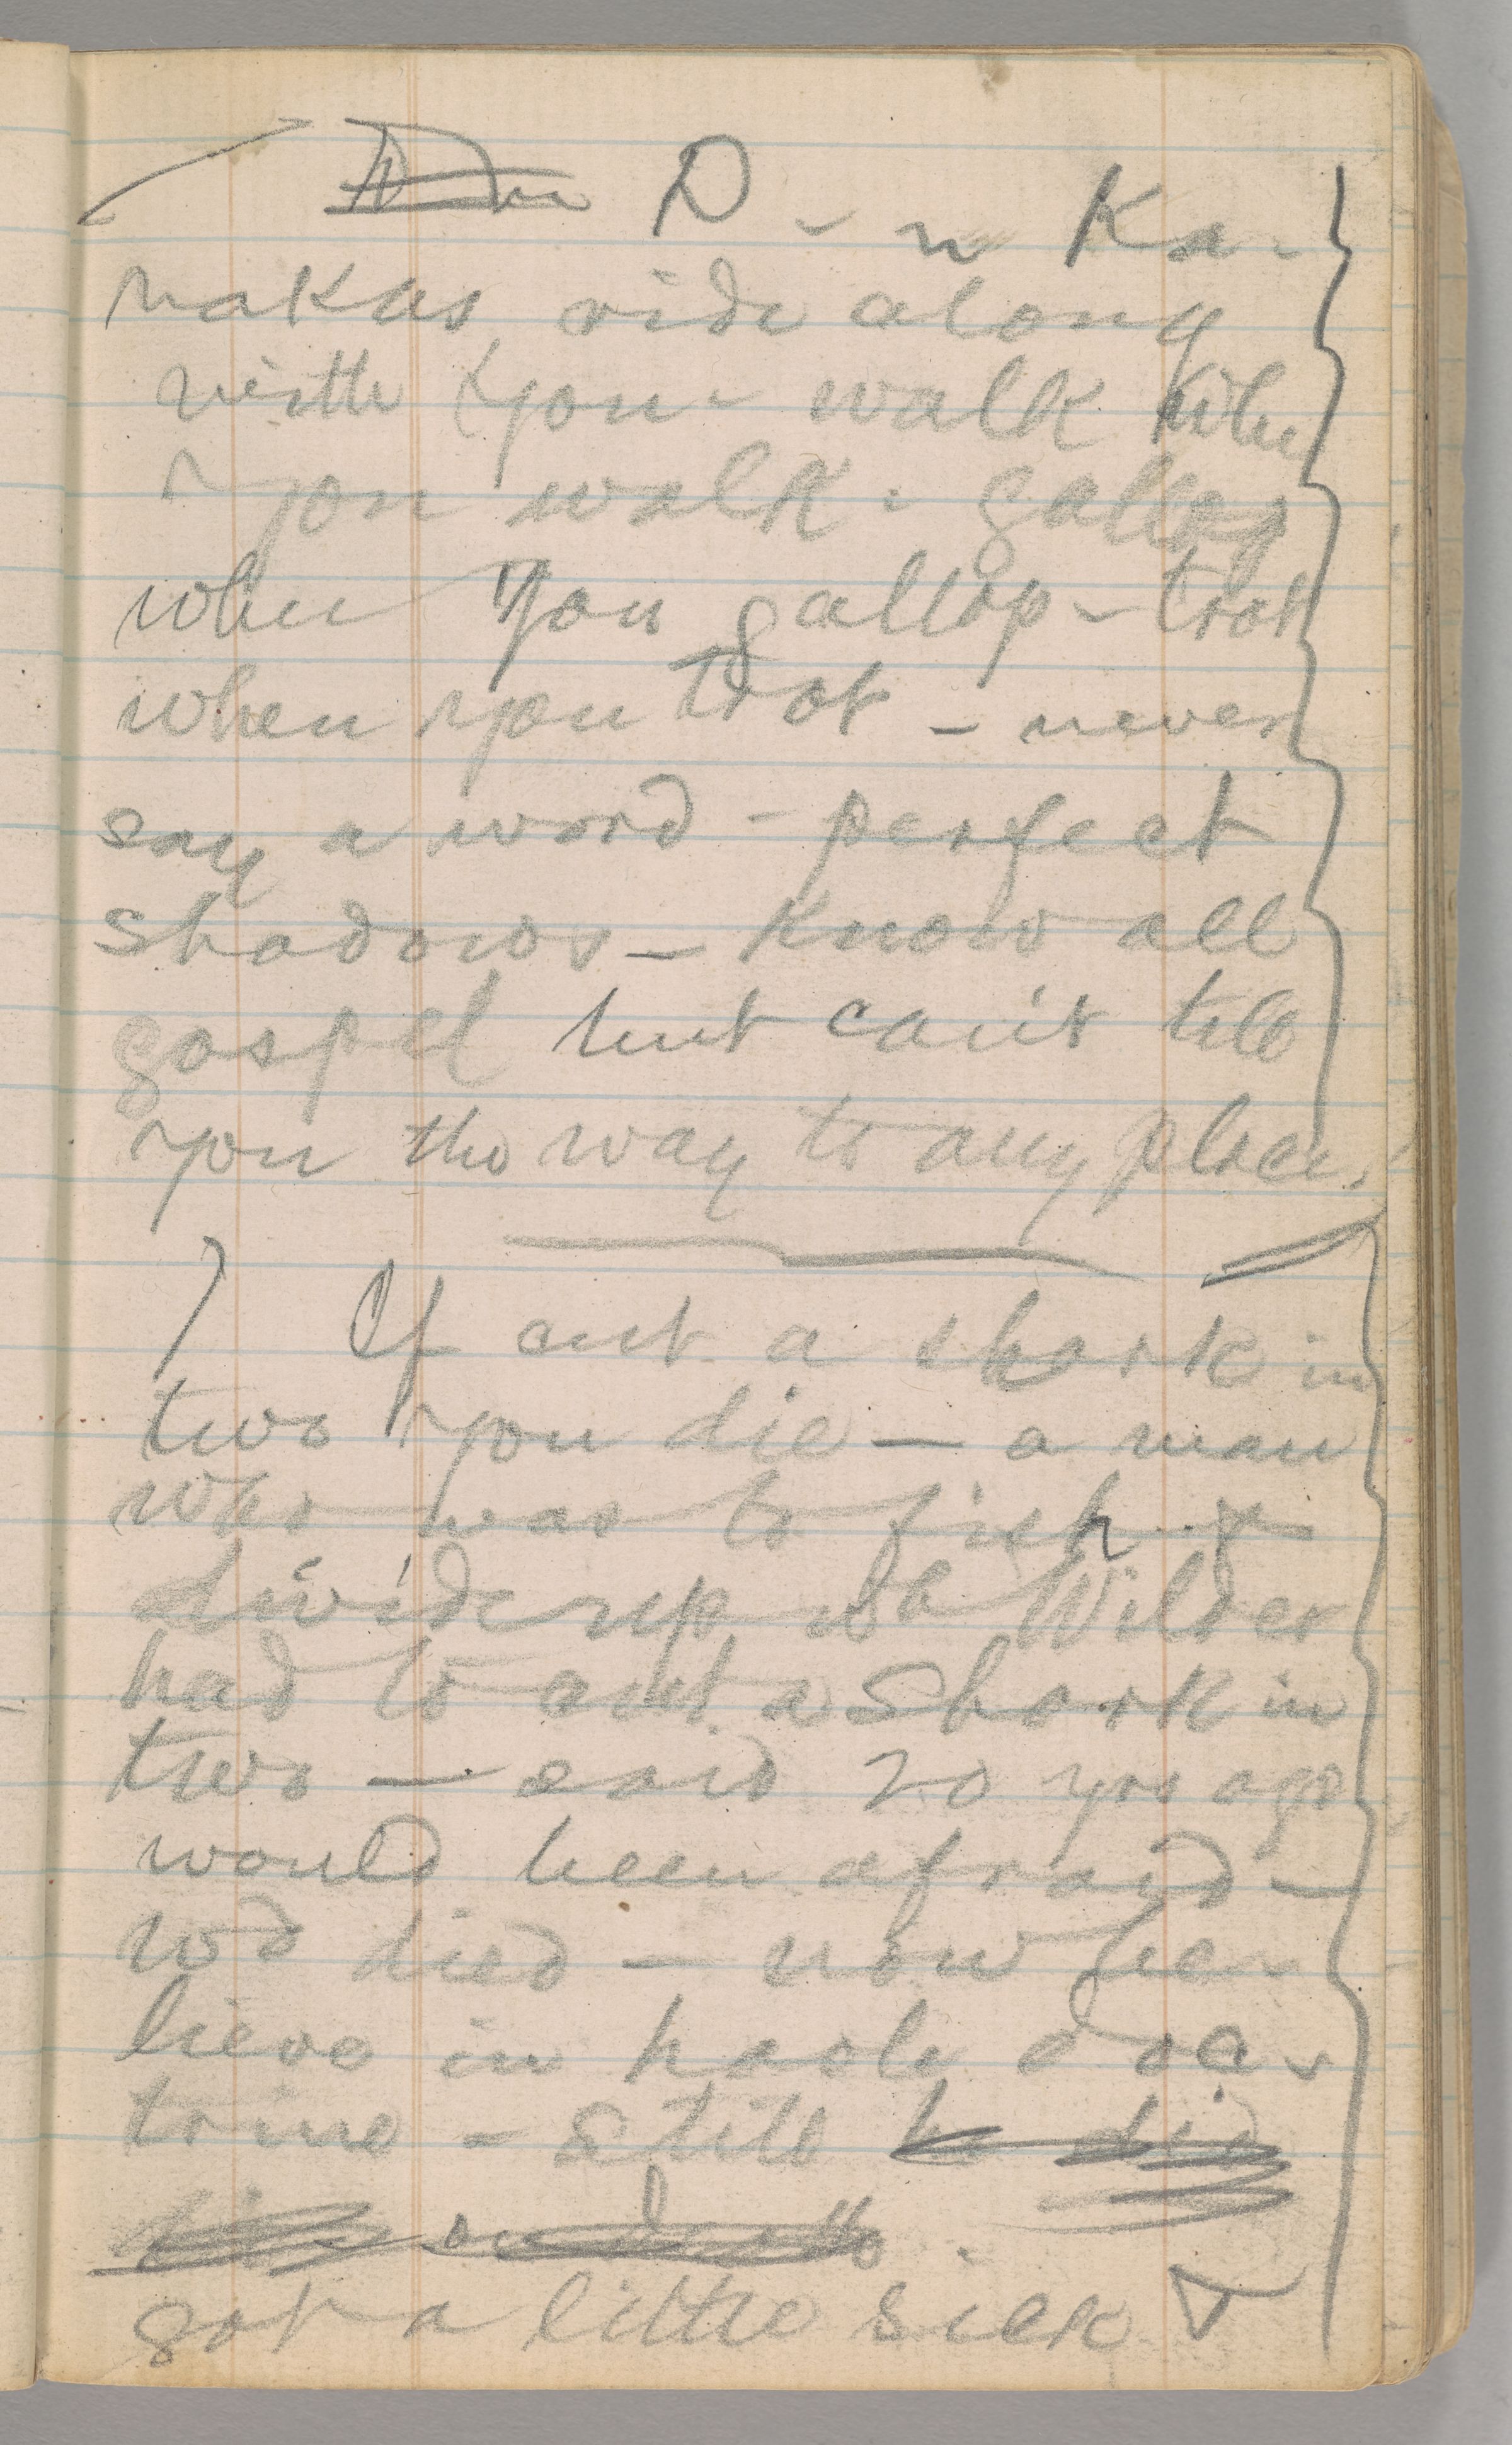 D – n Ka-
nakas ride along
with you – walk when
you walk – gallop
when you gallop – trot
when you trot – never
say a word – perfect
shadows – Know all
gospel but can't tell
you the way to any place.
If cut a shark in
two you die — a man
who was to fish &
divide up w Wilder
had to cut a shark in
two — said 20 yrs ago
would been afraid —
wd died — now be-
lieve in haole doc-
trine – still he did
on death
got a little sick